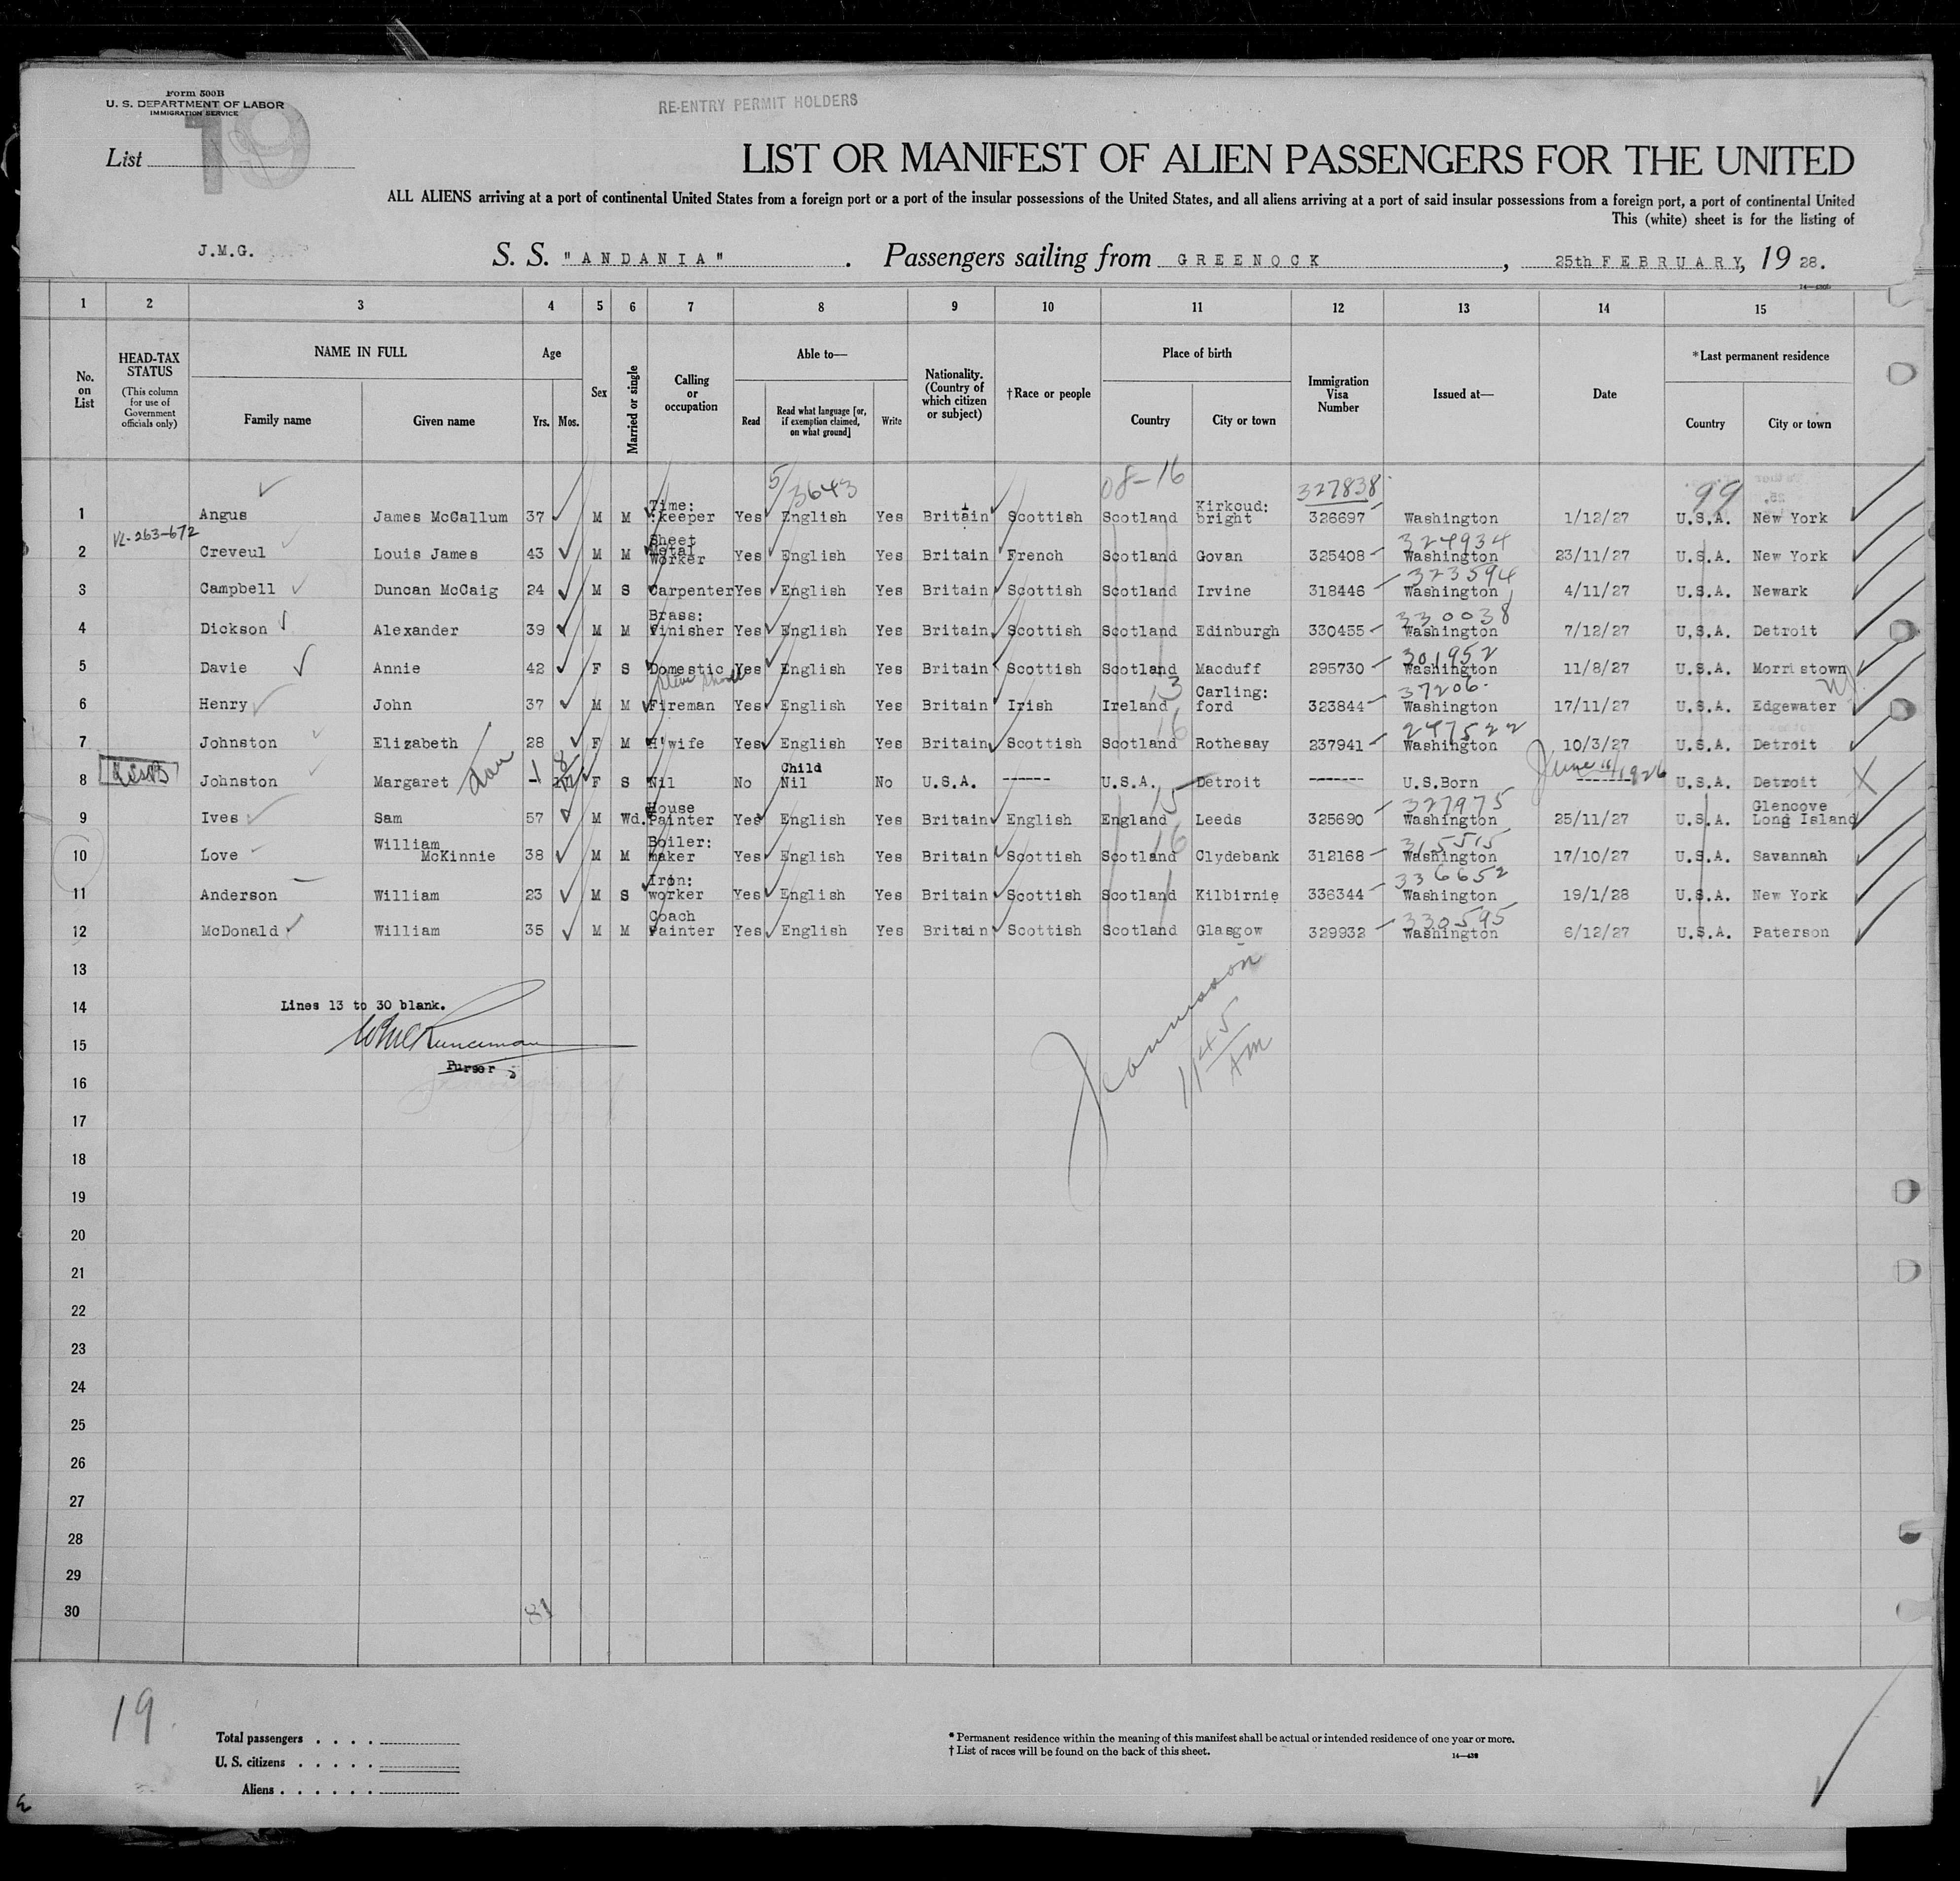 Form 500B
U. S. DEPARTMENT OF LABOR
IMMIGRATION SERVICE
RE-ENTRY PERMIT HOLDERS
19
List
LIST OR MANIFEST OF ALIEN PASSENGERS FOR THE UNITED
ALL ALIENS arriving at a port of continental United States from a foreign port or a port of the insular possessions of the United States, and all aliens arriving at a port of said insular possessions from a foreign port, a port of continental United
This (white) sheet is for the listing of
J.M.G. S. S. "ANDANIA". Passengers sailing from GREENOCK, 25th FEBRUARY, 19 28.
1 2 3 4 5 6 7 8 9 10 11 12 13 14 15
No. on List
HEAD-TAX STATUS (This column for use of Government officials only)
NAME IN FULL Family name Given name
Age Yrs. Mos.
Sex
Married or single
Calling or occupation
Able to— Read Read what language [or, if exemption claimed, on what ground] Write
Nationality. (Country of which citizen or subject)
†Race or people
Place of birth Country City or town
Immigration Visa Number
Issued at—
Date
*Last permanent residence Country City or town
5/3643 08-16 327838 99
1 Angus James McCallum 37 M M Time: keeper Yes English Yes Britain Scottish Scotland Kirkcud: bright 326697 Washington 1/12/27 U.S.A. New York
VL-263-672 324934
2 Creveul Louis James 43 M M Sheet Metal Worker Yes English Yes Britain French Scotland Govan 325408 Washington 23/11/27 U.S.A. New York
323594
3 Campbell Duncan McCaig 24 M S Carpenter Yes English Yes Britain Scottish Scotland Irvine 318446 Washington 4/11/27 U.S.A. Newark
330038
4 Dickson Alexander 39 M M Brass: Finisher Yes English Yes Britain Scottish Scotland Edinburgh 330455 Washington 7/12/27 U.S.A. Detroit
301952
5 Davie Annie 42 F S Domestic Yes English Yes Britain Scottish Scotland Macduff 295730 Washington 11/8/27 U.S.A. Morristown
13 37206
6 Henry John 37 M M Fireman Yes English Yes Britain Irish Ireland Carling: ford 323844 Washington 17/11/27 U.S.A. Edgewater
16 247522
7 Johnston Elizabeth 28 F M H'wife Yes English Yes Britain Scottish Scotland Rothesay 237941 Washington 10/3/27 U.S.A. Detroit
June 16/1926
8 Johnston Margaret dau 1 8 F S Nil No Child Nil No U.S.A. ------ U.S.A. Detroit ------- U.S.Born ------ U.S.A. Detroit X
15 327975
9 Ives Sam 57 M Wd. House Painter Yes English Yes Britain English England Leeds 325690 Washington 25/11/27 U.S.A. Glencove Long Island
16 315515
10 Love William McKinnie 38 M M Boiler: maker Yes English Yes Britain Scottish Scotland Clydebank 312168 Washington 17/10/27 U.S.A. Savannah
336652
11 Anderson William 23 M S Iron: worker Yes English Yes Britain Scottish Scotland Kilbirnie 336344 Washington 19/1/28 U.S.A. New York
330595
12 McDonald William 35 M M Coach Painter Yes English Yes Britain Scottish Scotland Glasgow 329932 Washington 6/12/27 U.S.A. Paterson
13
14 Lines 13 to 30 blank.
15
Purser
11 45 AM
16
17
18
19
20
21
22
23
24
25
26
27
28
29
30 81
19.
Total passengers . . . .
U. S. citizens . . . . .
Aliens . . . . . .
* Permanent residence within the meaning of this manifest shall be actual or intended residence of one year or more.
† List of races will be found on the back of this sheet.
14—428